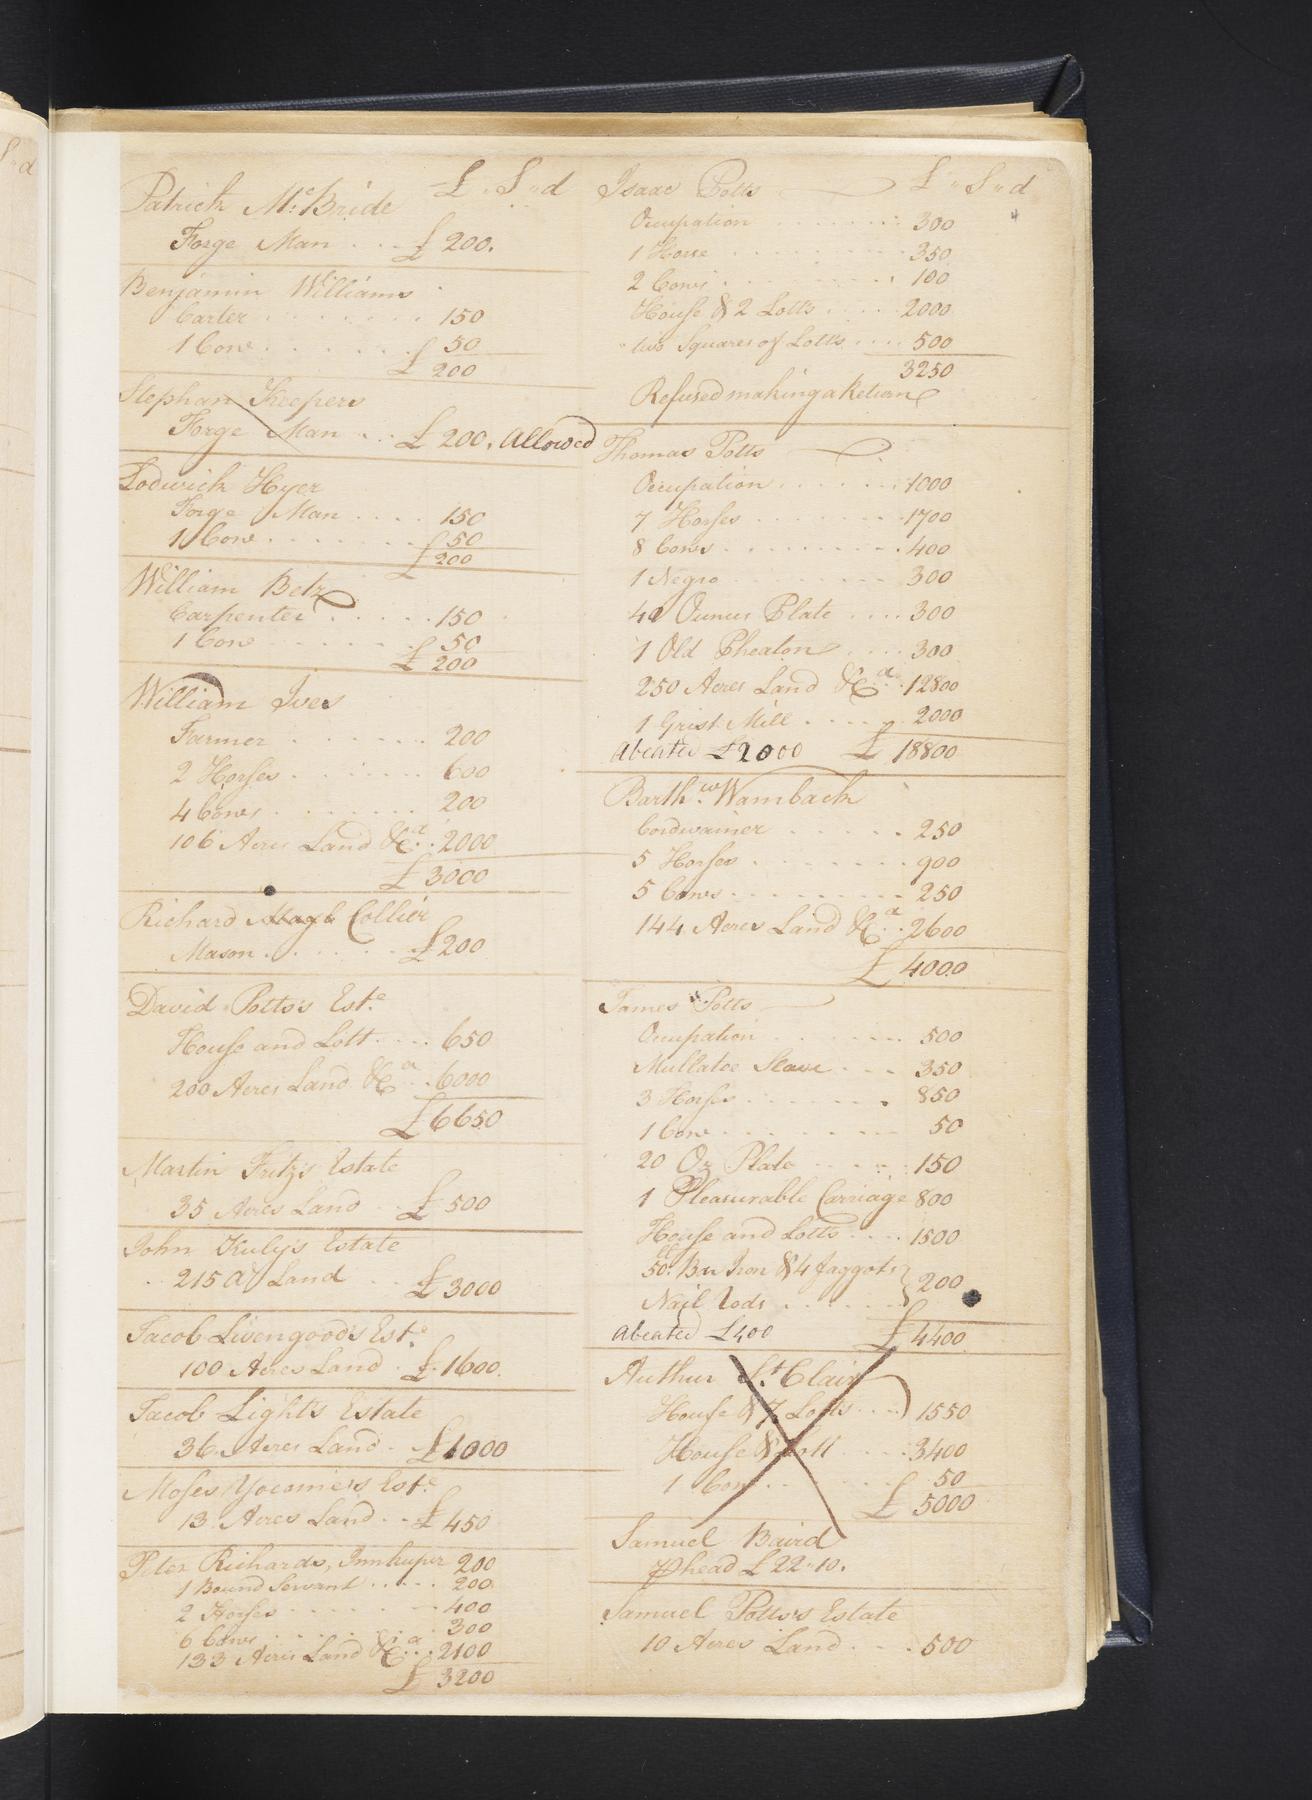 £ " S " d
Patrick McBride
Forge Man . . . £ 200.
Benjamin Williams
Carter . . . . . . . 150
1 Cow . . . . . . . 50
£ 200
Stephan Keepers
Forge Man . . . £ 200. Allowed
Lodwick Hyer
Forge Man . . . . 150
1 Cow . . . . . . . 50
£ 200
William Betz
Carpenter . . . . . 150
1 Cow . . . . . . . 50
£ 200
William Ives
Farmer . . . . . . . 200
2 Horses . . . . . . . 600
4 Cows . . . . . . . 200
106 Acres Land &ca . . 2000
£ 3000
Richard Collier
Mason . . . . . . . £ 200
David Potts's Este
House and Lott . . . . 650
200 Acres Land &ca . . 6000
£ 6650
Martin Fritz's Estate
35 Acres Land . . £ 500
John Kuly's Estate
215 As Land . . . £ 3000
Jacob Livengood's Este
100 Acres Land . £ 1600.
Jacob Light's Estate
36 Acres Land . . £ 1000
Moses Yocomie's Este
13 Acres Land . . £ 450
Peter Richards, Innkeper 200
1 Bound Servant . . . . . 200
2 Horses . . . . . . . 400
6 Cows . . . . . . . 300
133 Acres Land &ca . . . 2100
£ 3200
Isaac Potts £ " S " d
Ocupation . . . . . . . 300
1 Horse . . . . . . . 350
2 Cows . . . . . . . 100
House & 2 Lotts . . . . . 2000
two Squares of Lotts . . . . 500
3250
Refused making a Return
Thomas Potts
Occupation . . . . . . . 1000
7 Horses . . . . . . . 1700
8 Cows . . . . . . . 400
1 Negro . . . . . . . 300
40 Ounces Plate . . . . 300
1 Old Pheaton . . . . 300
250 Acres Land &ca . . 12800
1 Grist Mill . . . . . 2000
Abeated £2000 £ 18800
Barthw Wambach
Cordwainer . . . . . . 250
5 Horses . . . . . . . 900
5 Cows . . . . . . . 250
144 Acres Land &ca . . 2600
£ 4000
James Potts
Occupation . . . . . . . 500
Mullatoe Slave . . . 350
3 Horses . . . . . . . 850
1 Cow . . . . . . . 50
20 Oz Plate . . . . . . 150
1 Pleasurable Carriage 800
House and Lotts . . . . 1500
50 Bar Iron & 4 faggots } 200
Nail Rods . . . . . . .
Abeated £400 £ 4400
Authur St Clair
House & 7 Lotts . . . 1550
House & Lott . . . . 3400
1 Cow . . . . . . . 50
£ 5000
Samuel Baird
⅌ head £ 22"10.
Samuel Potts's Estate
10 Acres Land . . . . 500